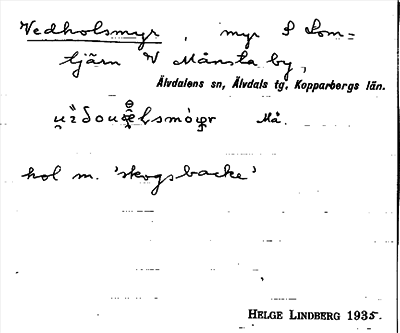 Vedholsmyr, myr S Lom=
tjärn V Månsta by,
Älvdalens sn, Älvdals tg, Kopparbergs län.
Må.
hol m. 'skogsbacke'
HELGE LINDBERG 1935.